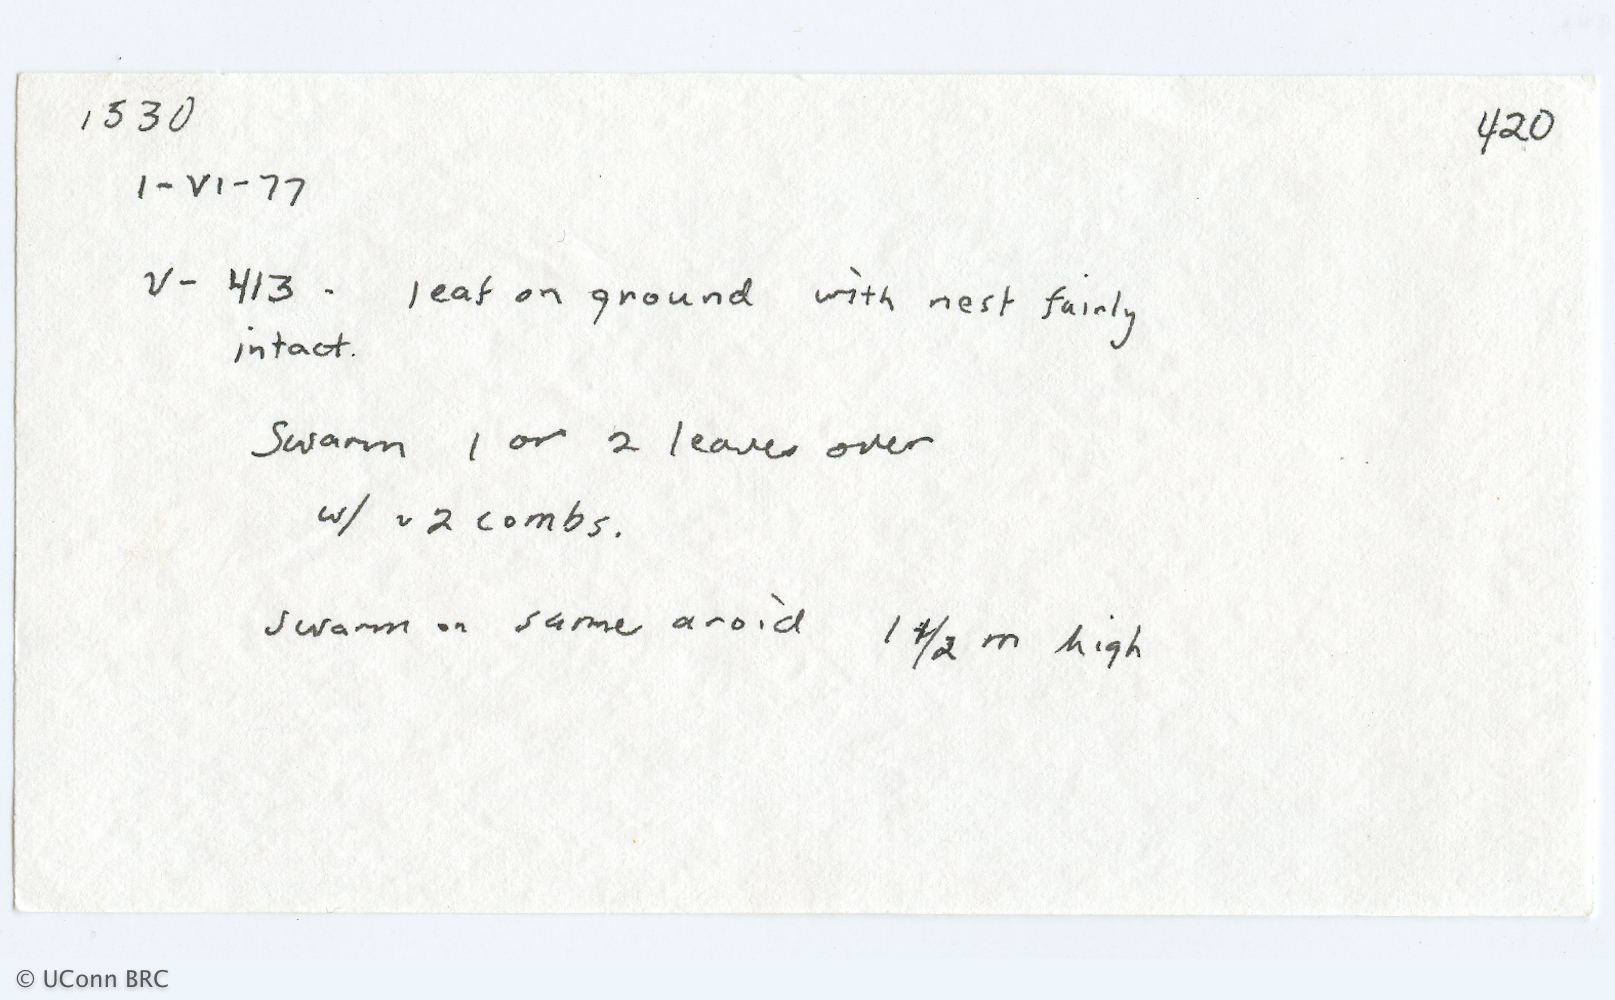 1530
420
1-VI-77
V- 413. leaf on ground with nest fairly
intact.
Swarm 1 or 2 leaves over
w/ ~2 combs.
swarm on same aroid 1 1/2 m high
© UConn BRC